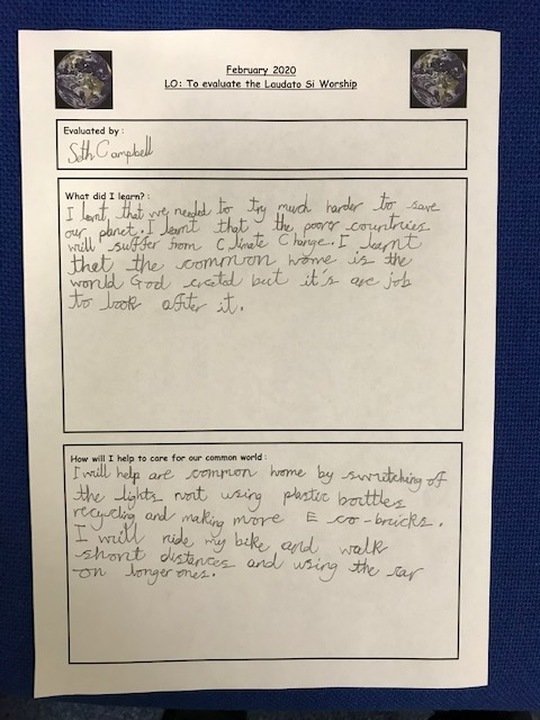 February 2020
LO: To evaluate the Laudato Si Worship
Evaluated by :
Seth Campbell
What did I learn? :
I lernt that we needed to try much harder to save
our planet. I learnt that the poor countries
will suffer from Climate Change. I learnt
that the common home is the
world God created but it's are job
to look after it.
How will I help to care for our common world :
I will help are common home by switching of
the lights not using plastic bottles
recycling and making more Eco-bricks.
I will ride my bike and walk
short distances and using the car
on longer ones.